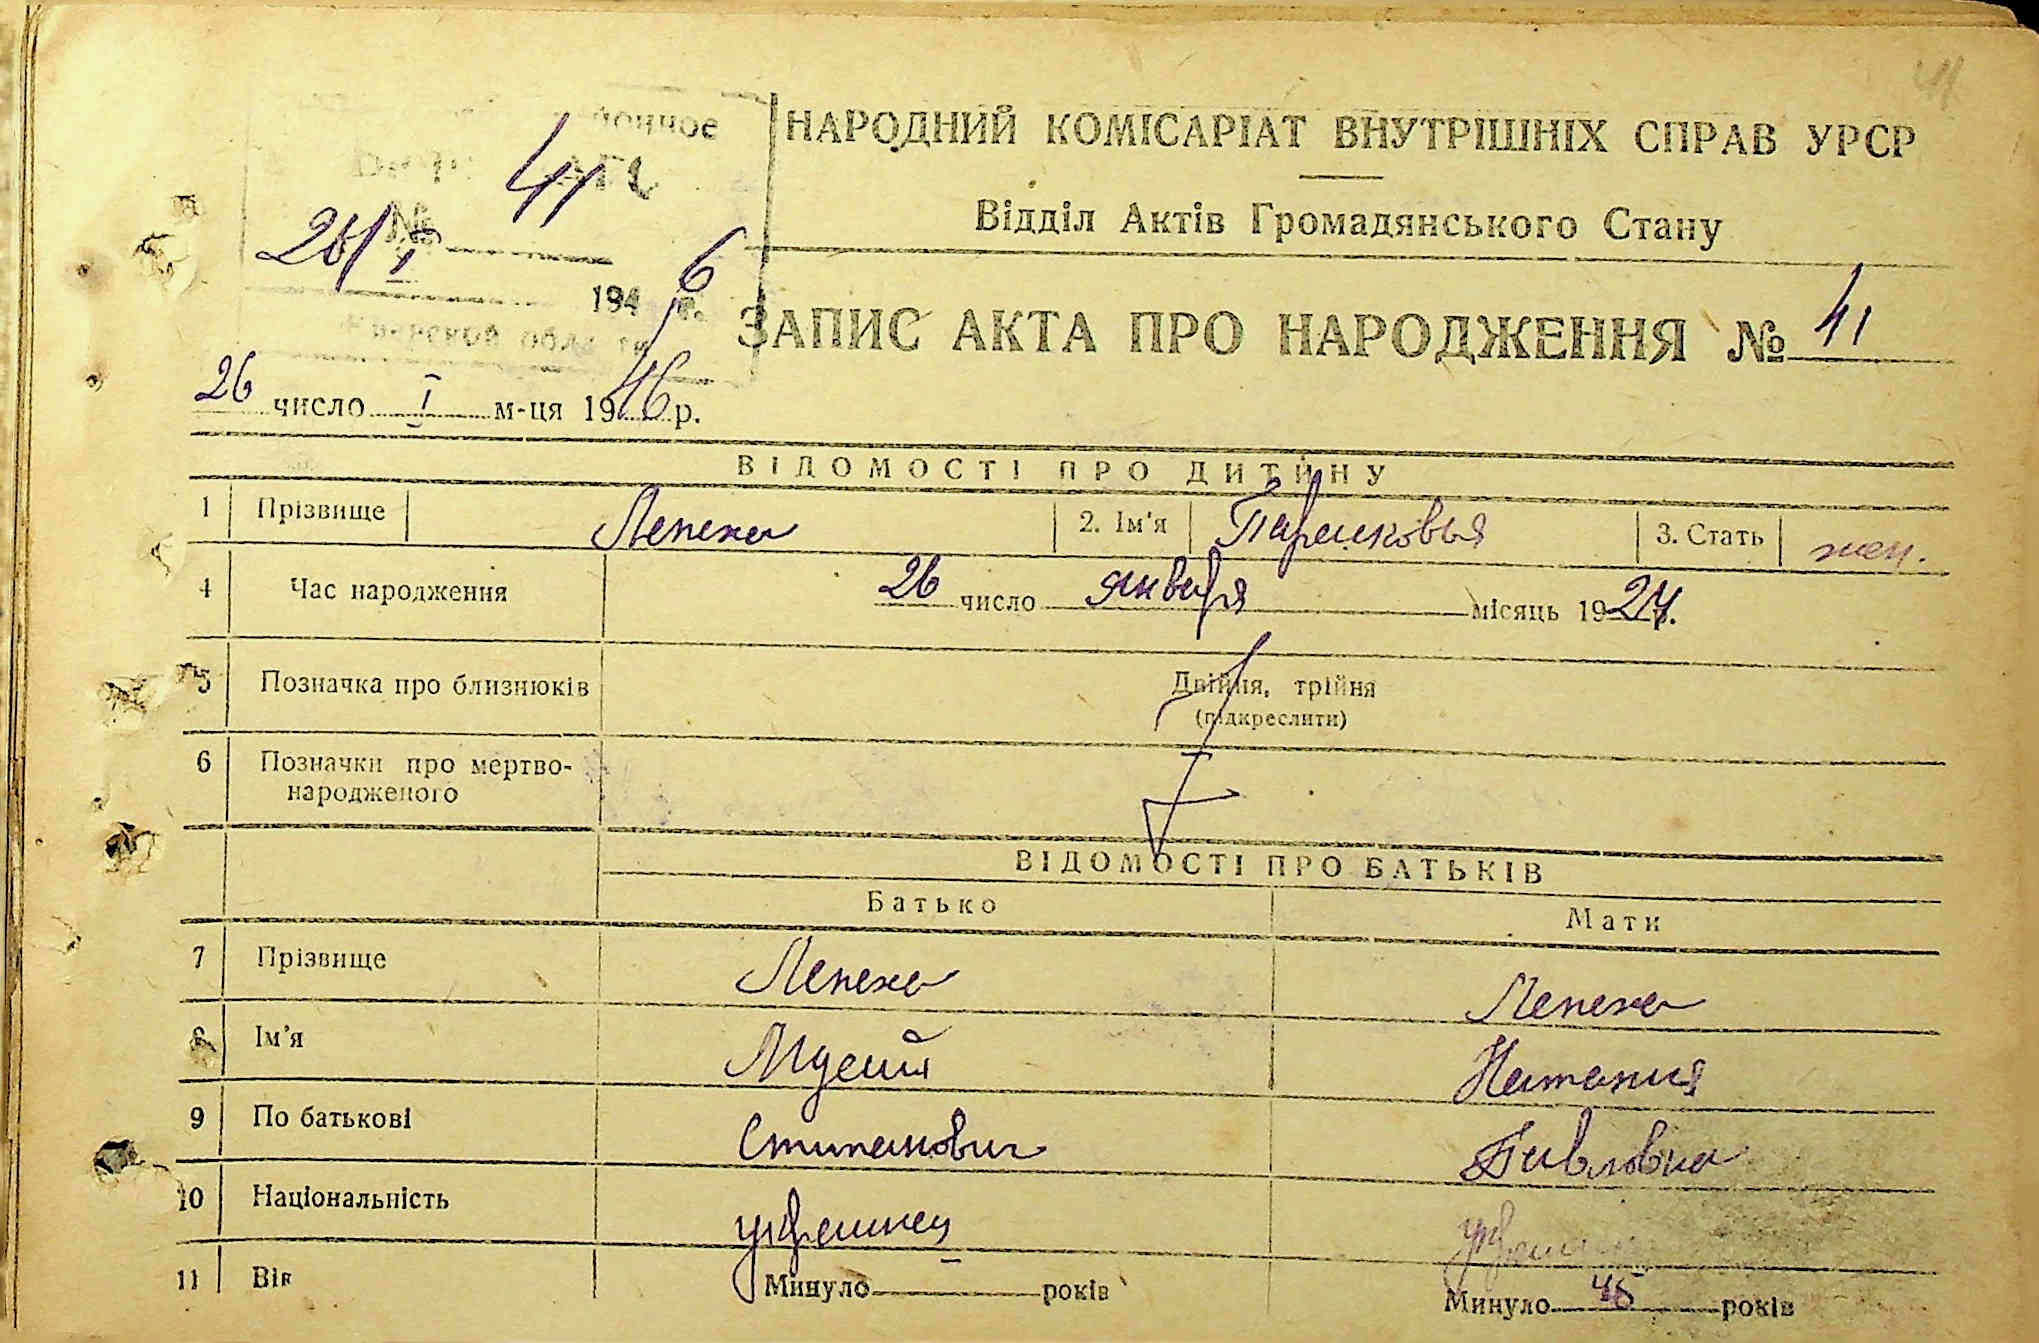 41
НАРОДНИЙ КОМІСАРІАТ ВНУТРІШНІХ СПРАВ УРСР
Відділ Актів Громадянського Стану
№ 41
26/I 1946 г.
ЗАПИС АКТА ПРО НАРОДЖЕННЯ № 41
26 число I м-ця 1946 р.
ВІДОМОСТІ ПРО ДИТИНУ
1 Прізвище Лепеха 2. Ім'я Парасковья 3. Стать жен.
4 Час народження 26 число января місяць 1924 р.
5 Позначка про близнюків Двійня, трійня
(підкреслити)
6 Позначки про мертво-
народженого
ВІДОМОСТІ ПРО БАТЬКІВ
Батько Мати
7 Прізвище Лепеха Лепеха
8 Ім'я Мусий Наталия
9 По батькові Степанович Павловна
10 Національність украинец
11 Вік Минуло – років Минуло 45 років